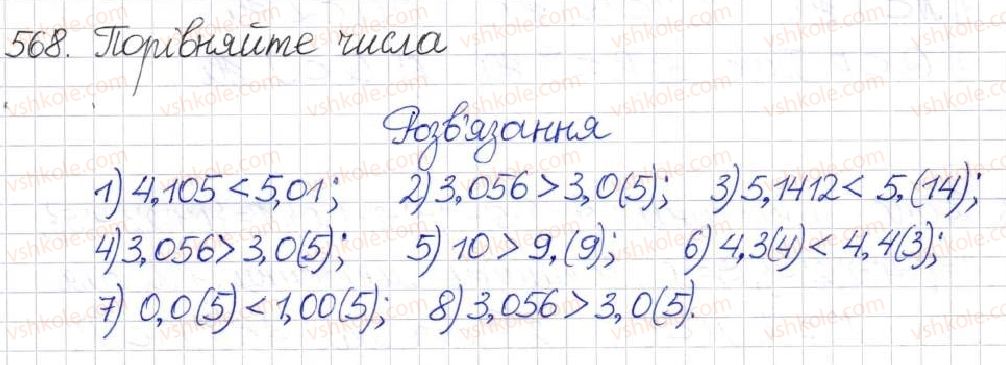 568. Порівняйте числа
Розв'язання
1) 4,105 < 5,01; 2) 3,056 > 3,0(5); 3) 5,1412 < 5,(14);
4) 3,056 > 3,0(5); 5) 10 > 9,(9); 6) 4,3(4) < 4,4(3);
7) 0,0(5) < 1,00(5); 8) 3,056 > 3,0(5).